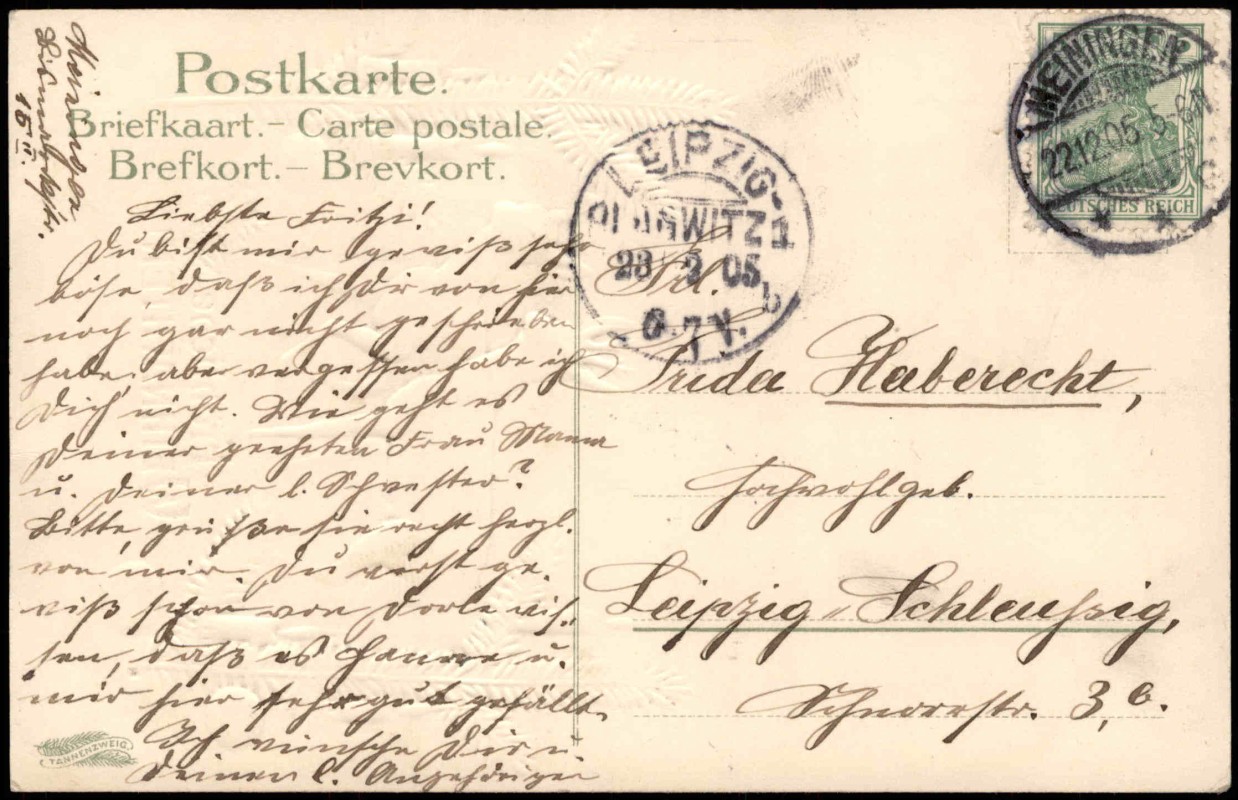 Meiningen
Bismarckstr.
15 II.
Postkarte.
Briefkaart. – Carte postale.
Brefkort. – Brevkort.
Liebste Fritzi!
Du bist mir gewiß sehr
böse, daß ich Dir von hier
noch gar nicht geschrieben
habe, aber vergessen habe ich
Dich nicht. Wie geht es
Deiner geehrten Frau Mama
u. Deiner l. Schwester?
Bitte, grüße sie recht herzl.
von mir. Du wirst ge-
wiß schon von Dorle wis-
sen, daß es u.
mir hier sehr gut gefällt.
Ich wünsche Dir u.
Deinen l. Angehörigen
TANNENZWEIG
LEIPZIG-
PLAGWITZ
23 2 05
6-7 V.
b
MEININGEN
22.12.05 5-6N
DEUTSCHES REICH
Frl.
Frida Haberecht,
Hochwohlgeb.
Leipzig-Schleußig,
Schnorrstr. 3, b.